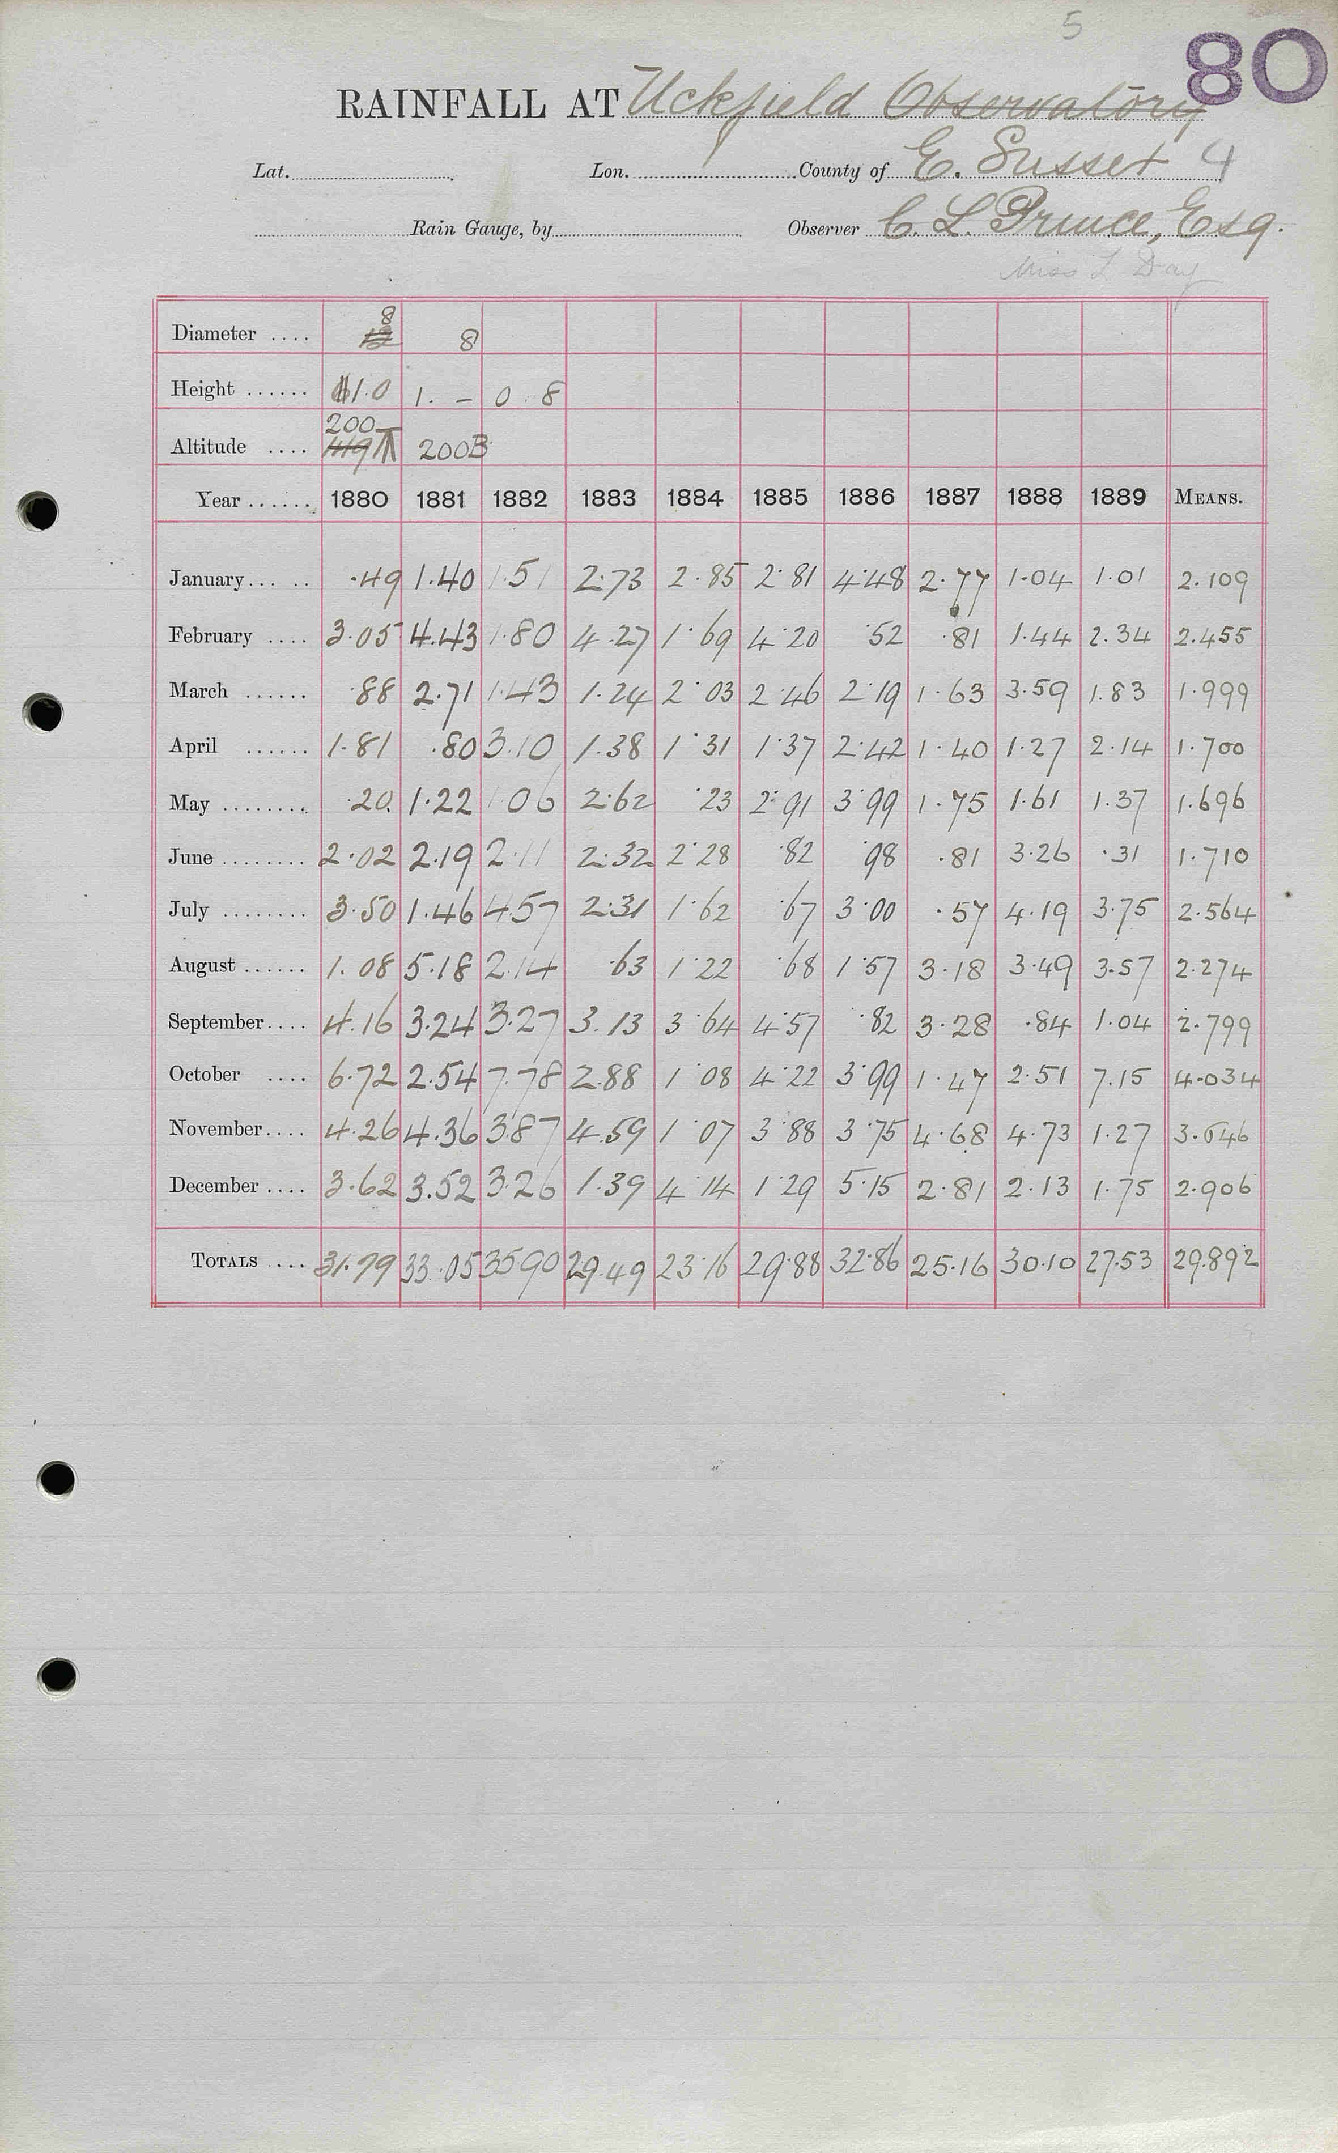 5
80
RAINFALL AT Uckfield Observatory
Lat. Lon. County of E. Sussex 4
Rain Gauge, by Observer C. L. Prince, Esq.
Miss L Day
Diameter .... 8 12 8
Height ...... 1.0 1. - 0 8
200
Altitude .... 149 T 200B
Year ...... 1880 1881 1882 1883 1884 1885 1886 1887 1888 1889 MEANS.
January ... .. .49 1.40 1.51 2.73 2.85 2.81 4.48 2.77 1.04 1.01 2.109
February .... 3.05 4.43 1.80 4.27 1.69 4.20 .52 .81 1.44 2.34 2.455
March ...... .88 2.71 1.43 1.24 2.03 2.46 2.19 1.63 3.59 1.83 1.999
April ...... 1.81 .80 3.10 1.38 1.31 1.37 2.42 1.40 1.27 2.14 1.700
May ........ .20 1.22 1.06 2.62 .23 2.91 3.99 1.75 1.61 1.37 1.696
June ........ 2.02 2.19 2.11 2.32 2.28 .82 .98 .81 3.26 .31 1.710
July ........ 3.50 1.46 4.57 2.31 1.62 .67 3.00 .57 4.19 3.75 2.564
August ...... 1.08 5.18 2.14 .63 1.22 .68 1.57 3.18 3.49 3.57 2.274
September .... 4.16 3.24 3.27 3.13 3.64 4.57 .82 3.28 .84 1.04 2.799
October .... 6.72 2.54 7.78 2.88 1.08 4.22 3.99 1.47 2.51 7.15 4.034
November .... 4.26 4.36 3.87 4.59 1.07 3.88 3.75 4.68 4.73 1.27 3.646
December .... 3.62 3.52 3.26 1.39 4.14 1.29 5.15 2.81 2.13 1.75 2.906
TOTALS .... 31.79 33.05 35.90 29.49 23.16 29.88 32.86 25.16 30.10 27.53 29.892